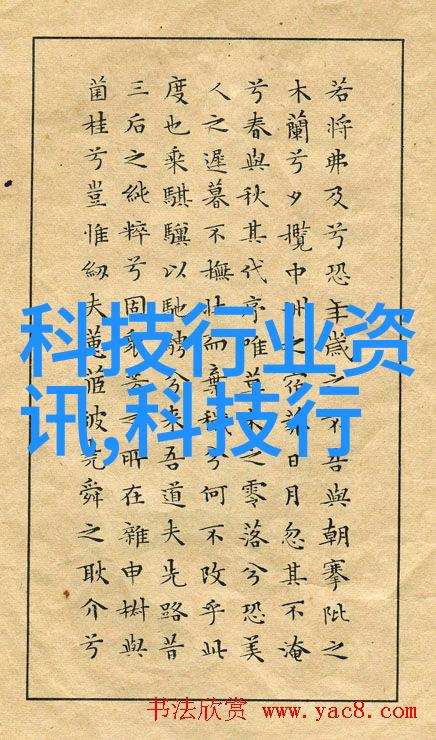 若將弗及兮恐年歲之不吾與朝搴阰之
木蘭兮夕攬中洲之宿莽日月忽其不淹
兮春與秋其代序唯草木之零落兮恐美
人之遲暮不撫壯而棄穢兮何不改乎此
度也乘騏驥以馳騁兮來吾道夫先路昔
三后之純粹兮固衆芳之所在雜申椒與
菌桂兮豈惟紉夫蕙茝彼堯舜之耿介兮
科技行业资
讯,科技行
书法欣赏 www.yac8.com